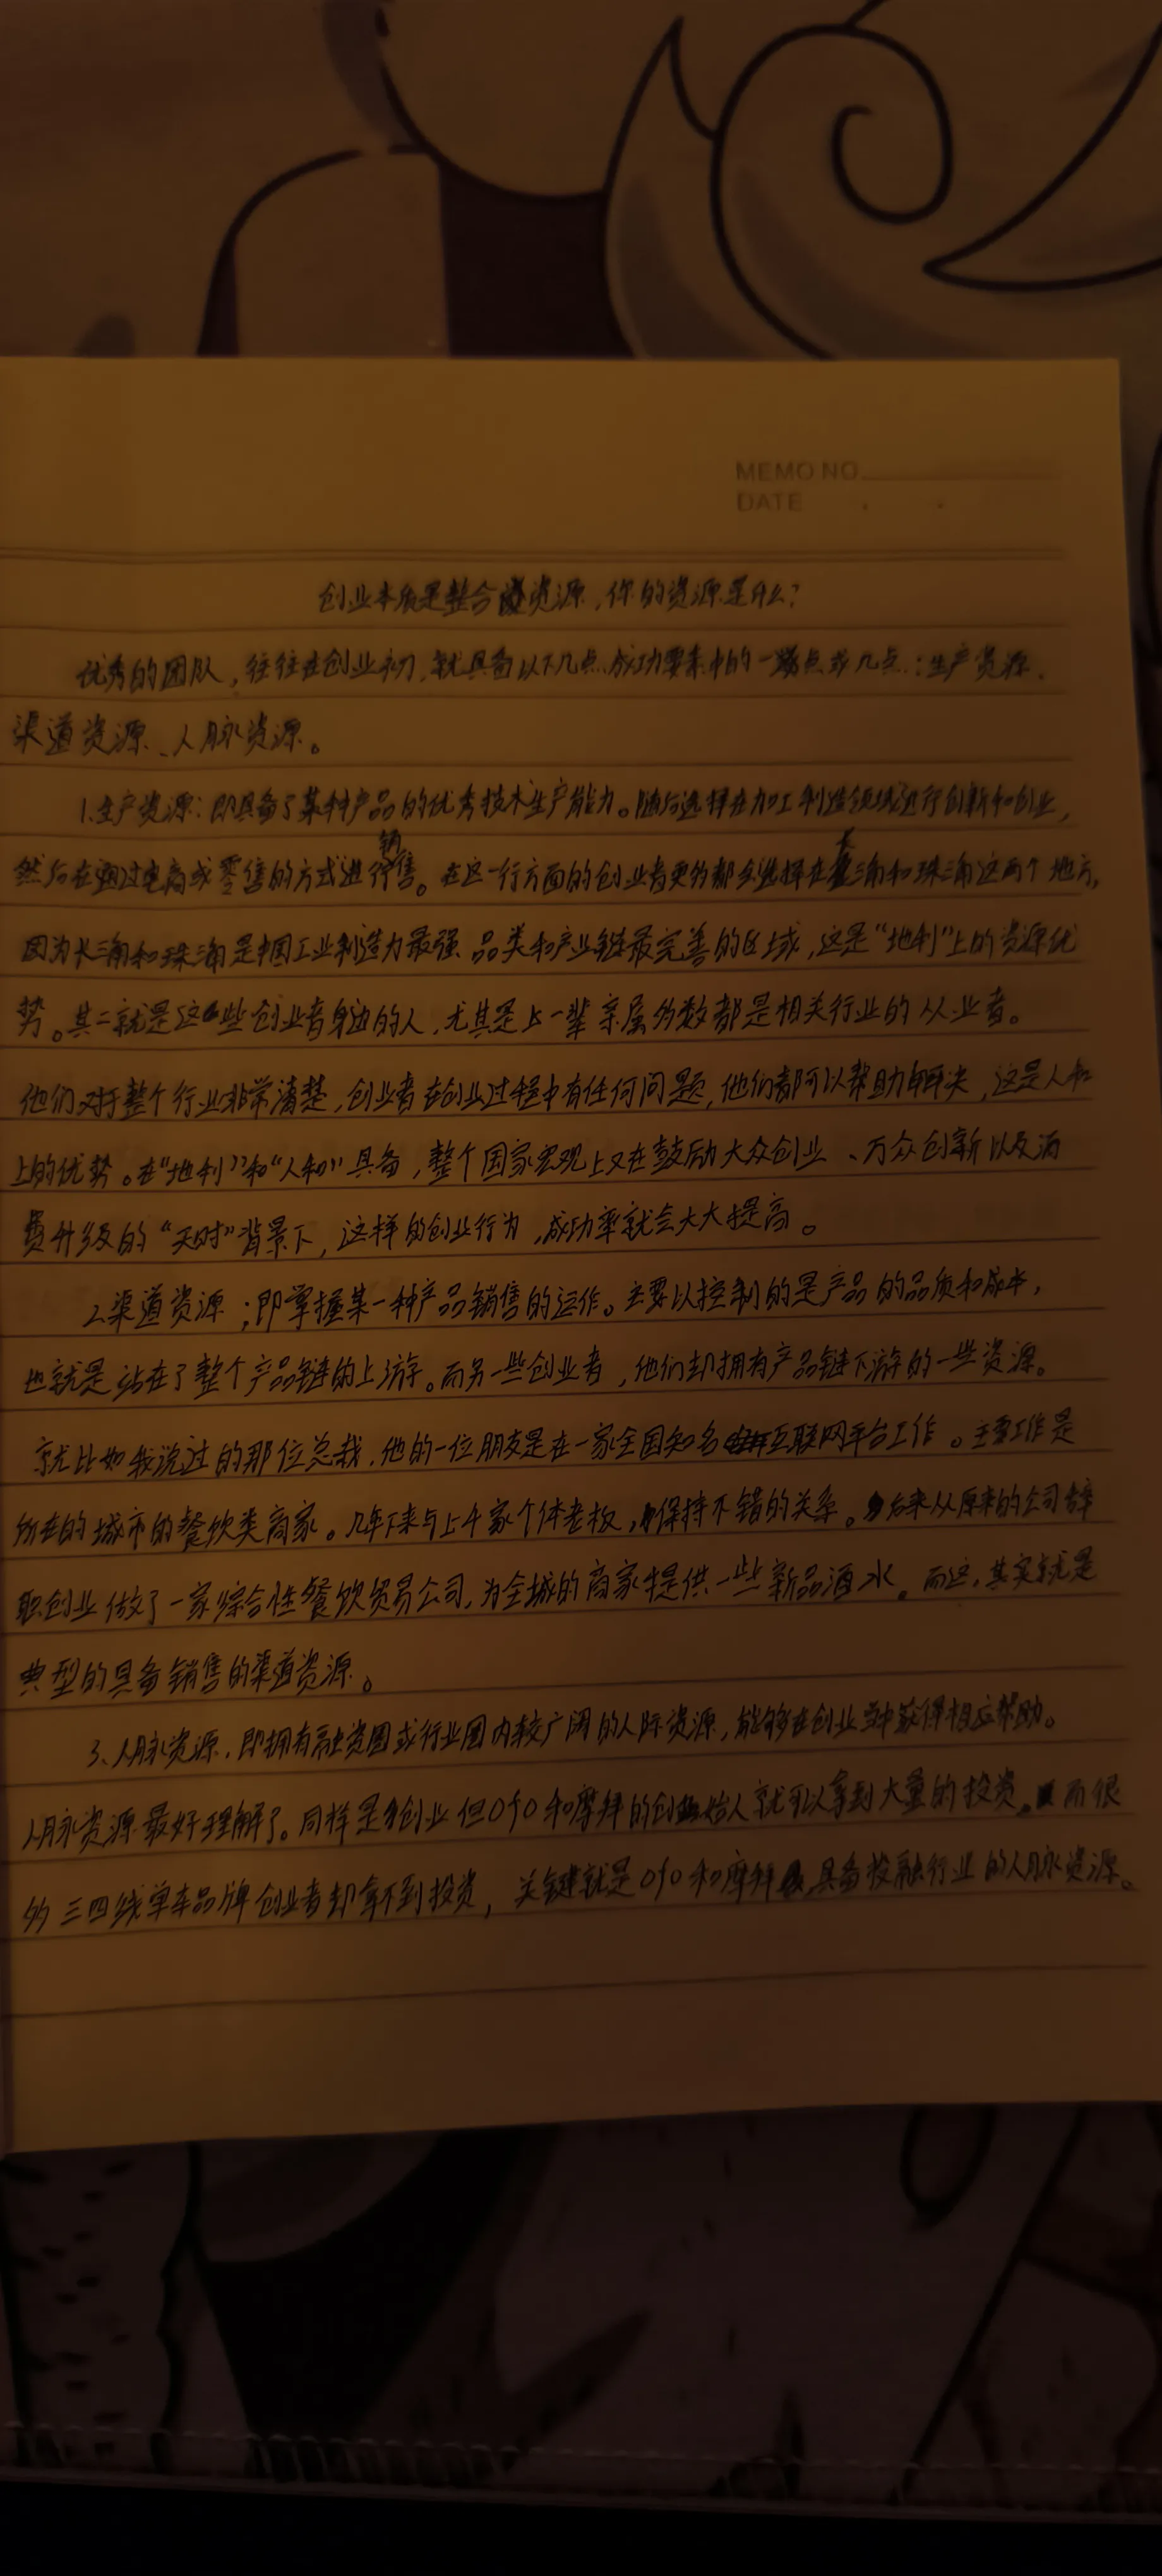 MEMO NO.
DATE . .
创业本质是整合资源，你的资源是什么？
优秀的团队，往往在创业初，就具备以下几点成功要素中的一点或几点：生产资源、
渠道资源、人脉资源。
1.生产资源：即具备了某种产品的优秀技术生产能力。随后选择在加工制造领域进行创新和创业，
然后在通过电商或零售的方式进行销售。在这一行方面的创业者更多都会选择在长三角和珠三角这两个地方，
因为长三角和珠三角是中国工业制造力最强、品类和产业链最完善的区域，这是“地利”上的资源优
势。其二就是这些创业者身边的人，尤其是上一辈亲属多数都是相关行业的从业者。
他们对于整个行业非常清楚，创业者在创业过程中有任何问题，他们都可以帮助解决，这是人和
上的优势。在“地利”和“人和”具备，整个国家宏观上又在鼓励大众创业、万众创新以及消
费升级的“天时”背景下，这样的创业行为，成功率就会大大提高。
2.渠道资源；即掌握某一种产品销售的运作。主要以控制的是产品的品质和成本，
也就是站在了整个产品链的上游。而另一些创业者，他们却拥有产品链下游的一些资源。
就比如我说过的那位总裁，他的一位朋友是在一家全国知名互联网平台工作。主要工作是
所在的城市的餐饮类商家。几年下来与上千家个体老板，保持不错的关系。后来从原来的公司辞
职创业做了一家综合性餐饮贸易公司，为全城的商家提供一些新品酒水。而这，其实就是
典型的具备销售的渠道资源。
3、人脉资源，即拥有融资圈或行业圈内较广阔的人际资源，能够在创业当中获得相应帮助。
人脉资源最好理解了。同样是创业但ofo和摩拜的创始人就可以拿到大量的投资。而很
多三四线单车品牌创业者却拿不到投资，关键就是ofo和摩拜具备投融行业的人脉资源。